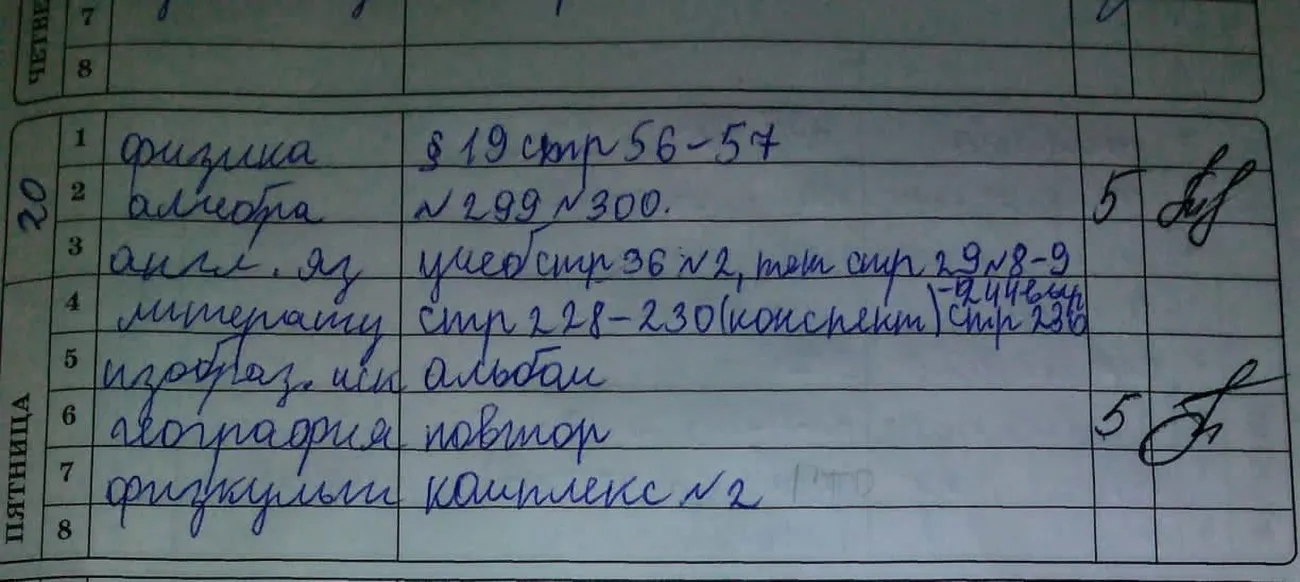 ЧЕТВЕ
7
8
20
ПЯТНИЦА
1 физика § 19 стр 56-57
2 алгебра №299 №300. 5
3 англ. яз учеб стр 36 №2, тет стр 29 №8-9
4 литерату стр 228-230 (конспект) стр 230
-244 выр
5 изобраз. иск альбом
6 география повтор 5
7 физкульт комплекс №2
8